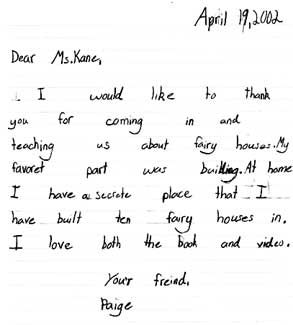 April 19,2002
Dear Ms.Kane,
I would like to thank
you for coming in and
teaching us about fairy houses. My
favoret part was building. At home
I have a secrete place that I
have built ten fairy houses in.
I love both the book and video.
Your freind,
Paige